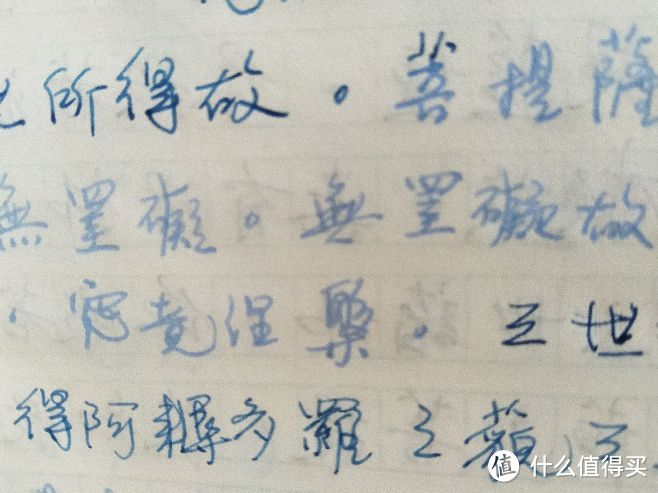 所得故。菩提薩
無罣礙。無罣礙故
。究竟涅槃。三世
得阿耨多羅三藐三
值 什么值得买